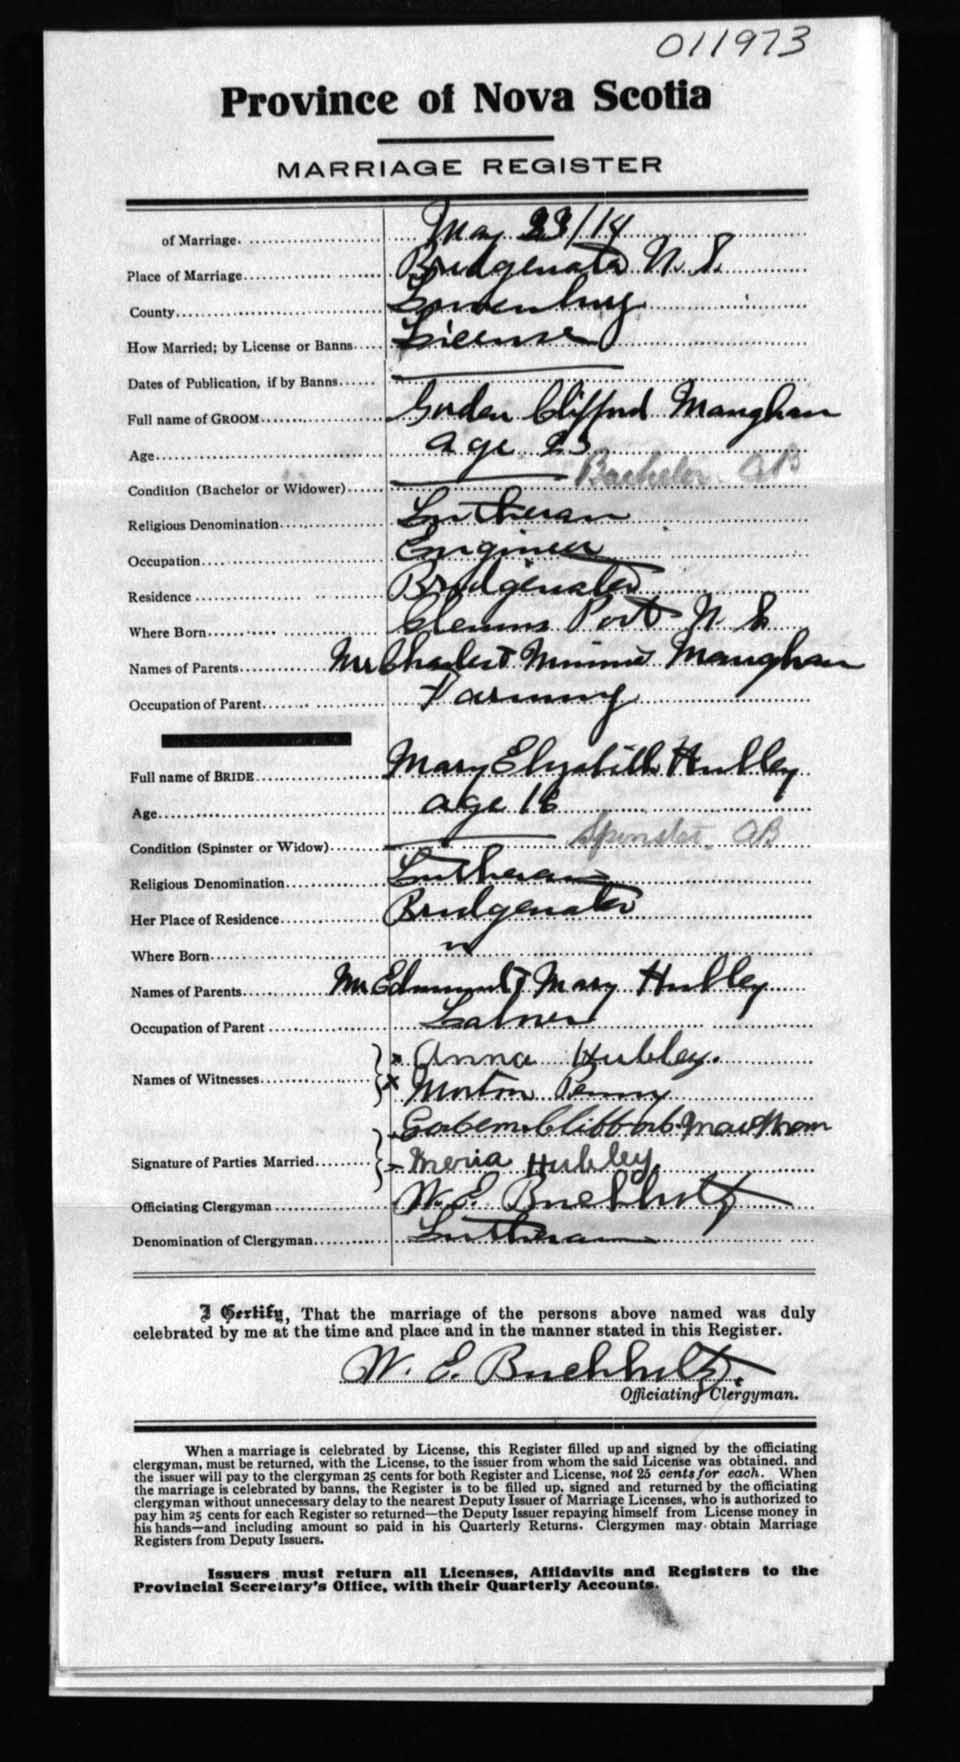 011973
Province of Nova Scotia
MARRIAGE REGISTER
of Marriage. May 23/14
Place of Marriage Bridgewater N. S.
County Lunenburg
How Married; by License or Banns License
Dates of Publication, if by Banns
Full name of GROOM Gorden Clifford Maughan
Age age 23
Condition (Bachelor or Widower) Bachelor AB
Religious Denomination Lutheran
Occupation Engineer
Residence Bridgewater
Where Born Clemens Port N. S.
Names of Parents Mr Charles & Minnie Maughan
Occupation of Parent Farming
Full name of BRIDE Mary Elyzabith Hubley
Age age 18
Condition (Spinster or Widow) Spinster AB
Religious Denomination Lutheran
Her Place of Residence Bridgewater
Where Born "
Names of Parents Mr Edmund & Mary Hubley
Occupation of Parent Laborer
x Anna Hubley.
Names of Witnesses x Morton Penny
Clifford
Signature of Parties Married Hubley
Officiating Clergyman W. E. Buchholtz
Denomination of Clergyman Lutheran
I Certify, That the marriage of the persons above named was duly
celebrated by me at the time and place and in the manner stated in this Register.
W. E. Buchholtz
Officiating Clergyman.
When a marriage is celebrated by License, this Register filled up and signed by the officiating
clergyman, must be returned, with the License, to the issuer from whom the said License was obtained, and
the issuer will pay to the clergyman 25 cents for both Register and License, not 25 cents for each. When
the marriage is celebrated by banns, the Register is to be filled up, signed and returned by the officiating
clergyman without unnecessary delay to the nearest Deputy Issuer of Marriage Licenses, who is authorized to
pay him 25 cents for each Register so returned—the Deputy Issuer repaying himself from License money in
his hands—and including amount so paid in his Quarterly Returns. Clergymen may obtain Marriage
Registers from Deputy Issuers.
Issuers must return all Licenses, Affidavits and Registers to the
Provincial Secretary's Office, with their Quarterly Accounts.